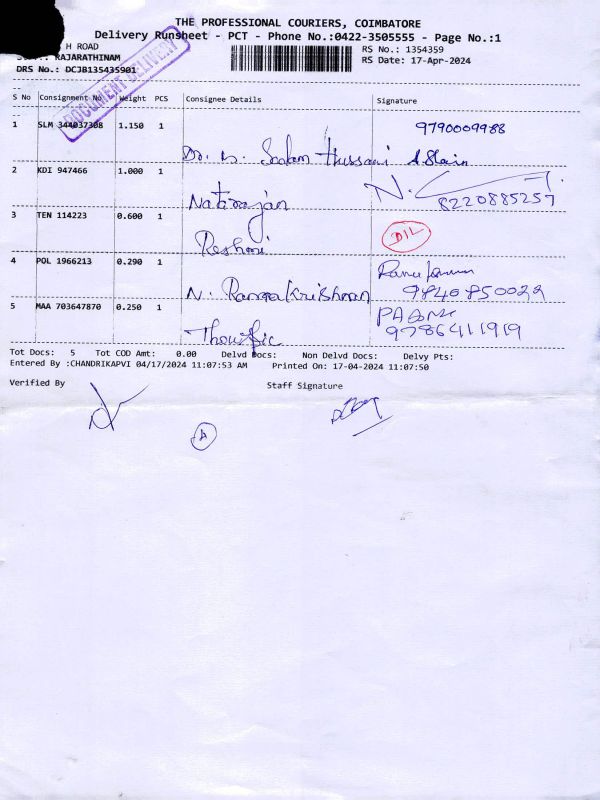 THE PROFESSIONAL COURIERS, COIMBATORE
Delivery Runsheet - PCT - Phone No.:0422-3505555 - Page No.:1
H ROAD
RS No.: 1354359
RAJARATHINAM
RS Date: 17-Apr-2024
DRS No.: DCJB135435901
DOCUMENT DELIVERY
S No Consignment No Weight PCS Consignee Details Signature
1 SLM 344037308 1.150 1 9790009988
Dr. Salam Hussain
2 KDI 947466 1.000 1
Natarajan 8220885257
3 TEN 114223 0.600 1
Reshmi DIL
4 POL 1966213 0.290 1
N. Ramakrishnan 9840850022
5 MAA 703647870 0.250 1
Thoufic 9786411919
Tot Docs: 5 Tot COD Amt: 0.00 Delvd Docs: Non Delvd Docs: Delvy Pts:
Entered By :CHANDRIKAPVI 04/17/2024 11:07:53 AM Printed On: 17-04-2024 11:07:50
Verified By Staff Signature
A